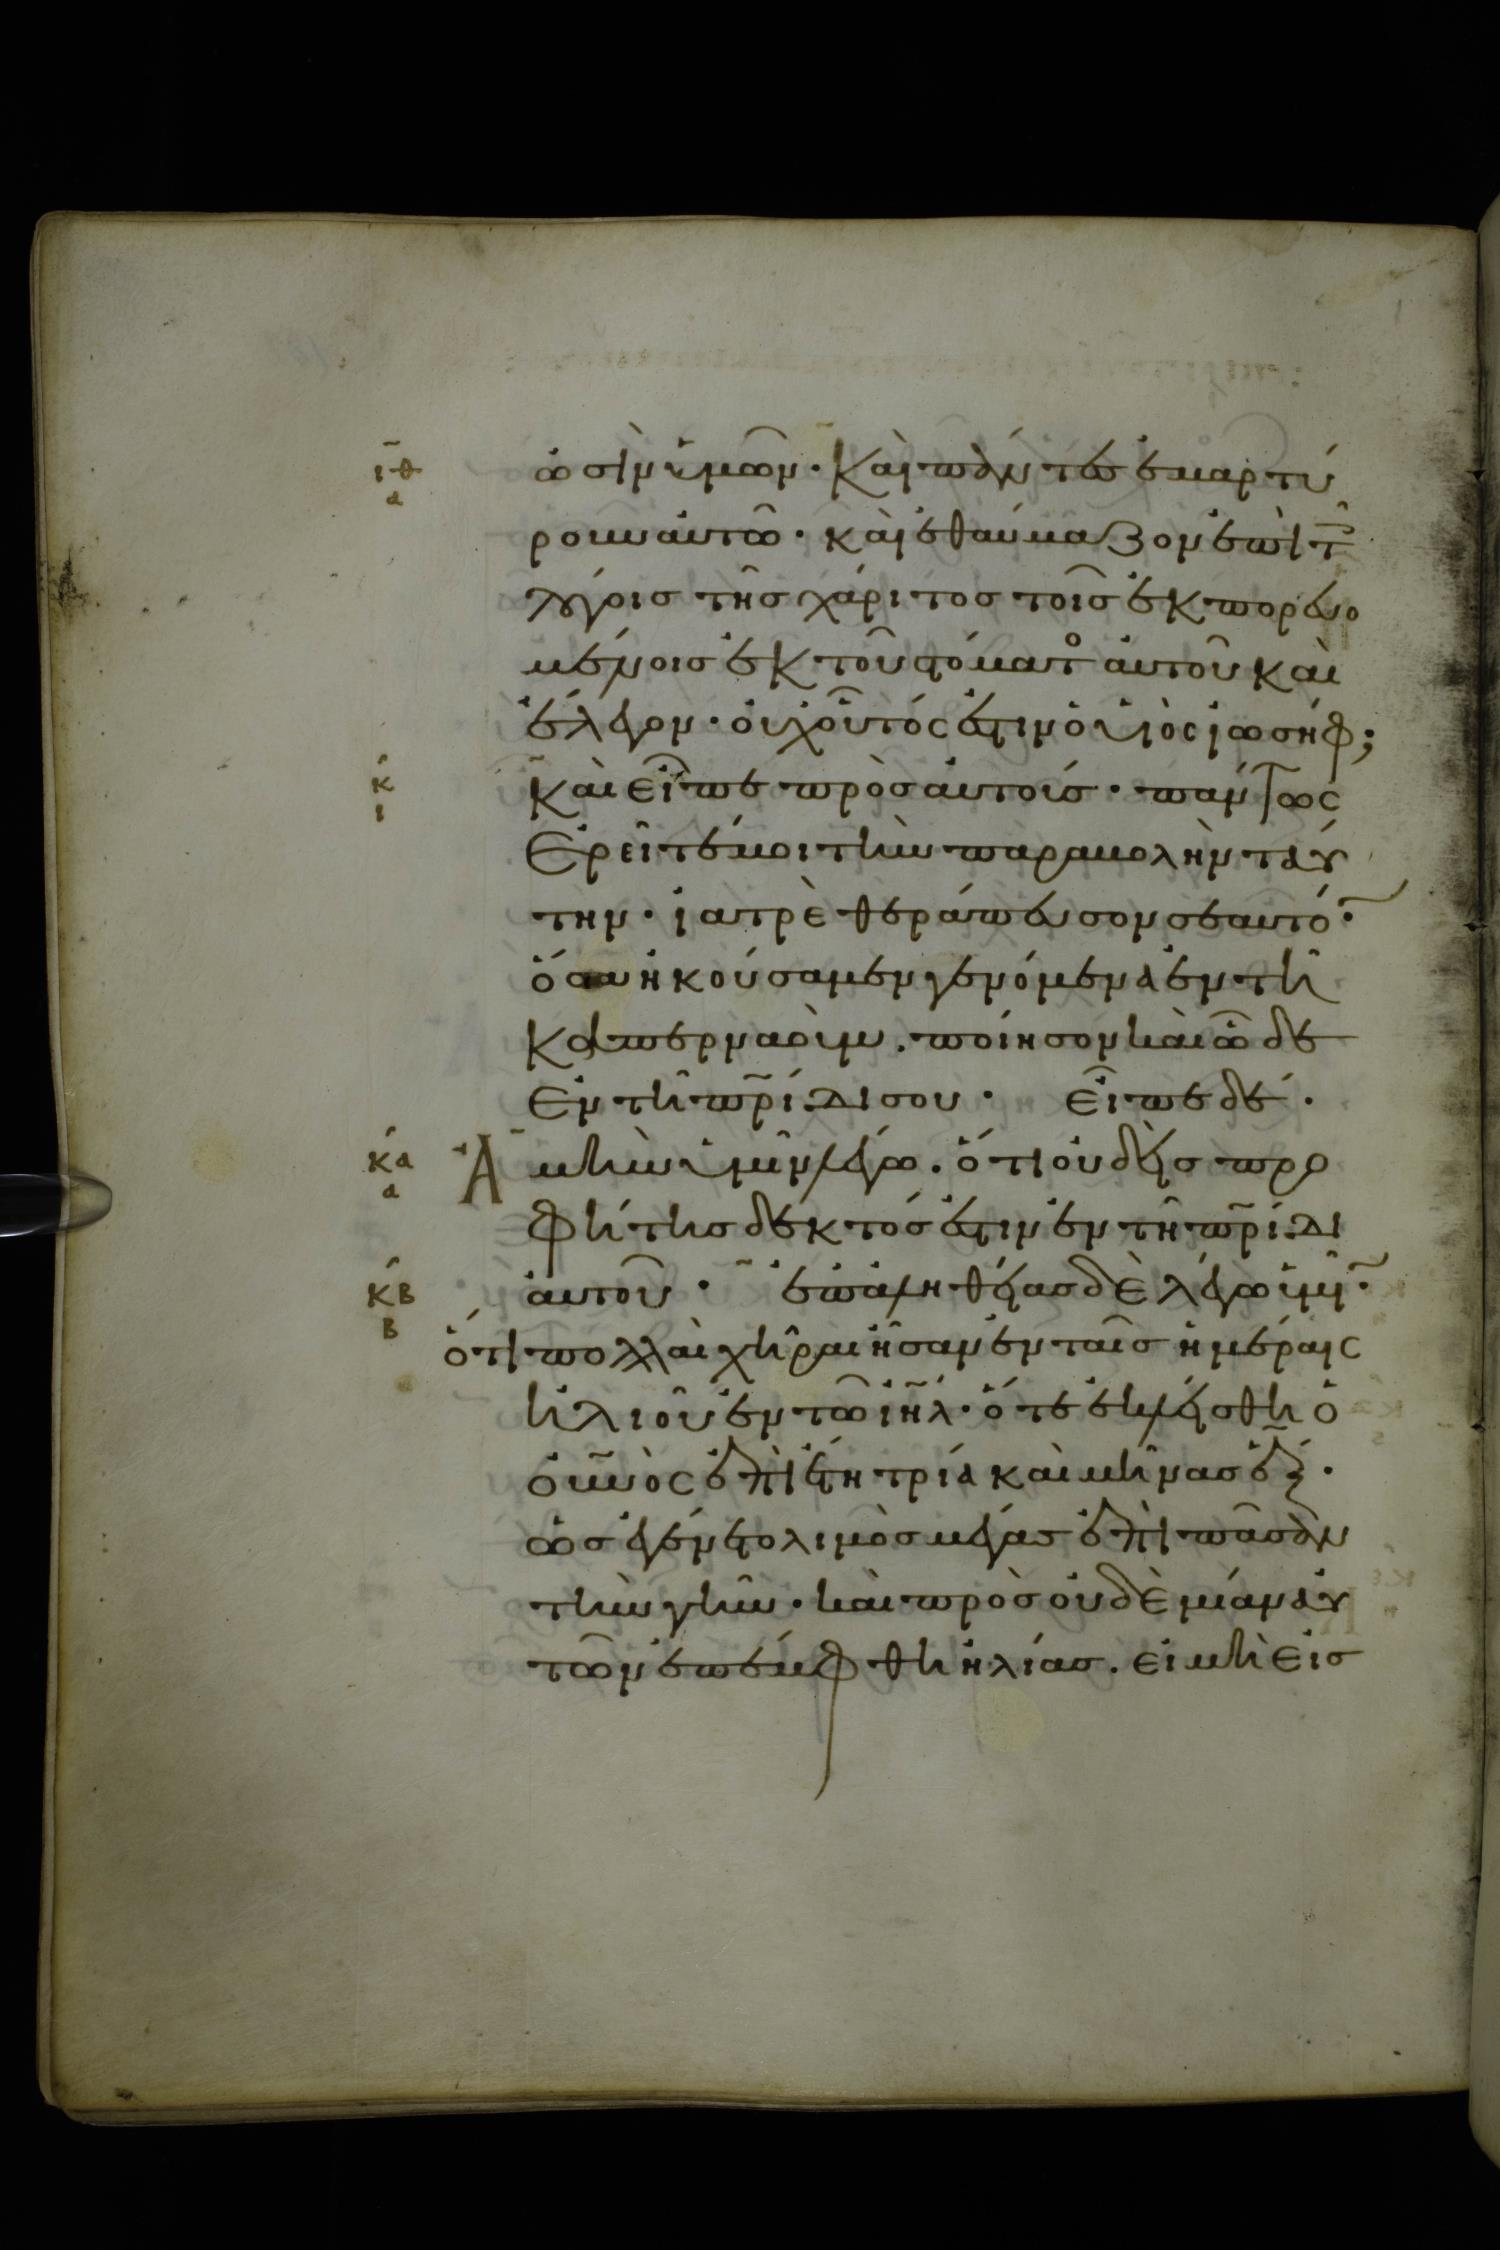 ιθ
α
ὠσὶν ὑμῶν· Καὶ πάντες ἐμαρτύ
ρουν αὐτῶ· καὶ ἐθαύμαζον ἐπὶ τ͂
λόγοις τῆς χάριτος τοῖς ἐκπορευο
μένοις ἐκ τοῦ στόματο αὐτοῦ καὶ
ἔλεγον· οὐχ οὗτός ἐστιν ὁ υἱὸς ἰωσήφ;
κ
ι
Καὶ εἶπε πρὸς αὐτούς· πάντως
Ἐρεῖτέ μοι τὴν παραβολὴν ταύ
την· ἰατρὲ θεράπευσον σεαυτό͂·
ὅσα ἠκούσαμεν γενόμενα ἐν τῆ
Καπερναούμ. ποίησον καὶ ὧδε
Ἐν τῆ πρ̅ίδι σου· εἶπε δέ·
κα
α
Ἀμὴν ὑμῖν λέγω. ὅτι οὐδεὶς προ
φήτης δεκτός ἐστιν ἐν τῆ πρ̅ίδι
κβ
β
αὐτοῦ· ἐπ' ἀληθείας δὲ λέγω ὑμῖ͂·
ὅτι πολλαὶ χῆραι ἦσαν ἐν ταῖς ἡμέραις
ἠλιοῦ ἐν τῶ ἰη̅λ· ὅτε ἐκλείσθη ὁ
οὐν̅ὸς ἐπὶ ἔτη τρία καὶ μῆνας ἕξ·
ὡς ἐγένετο λιμὸς μέγας ἐπὶ πᾶσαν
τὴν γῆν· καὶ πρὸς οὐδὲ μίαν αὐ
τῶν ἐπέμφθη ἠλίας. εἰ μὴ εἰς